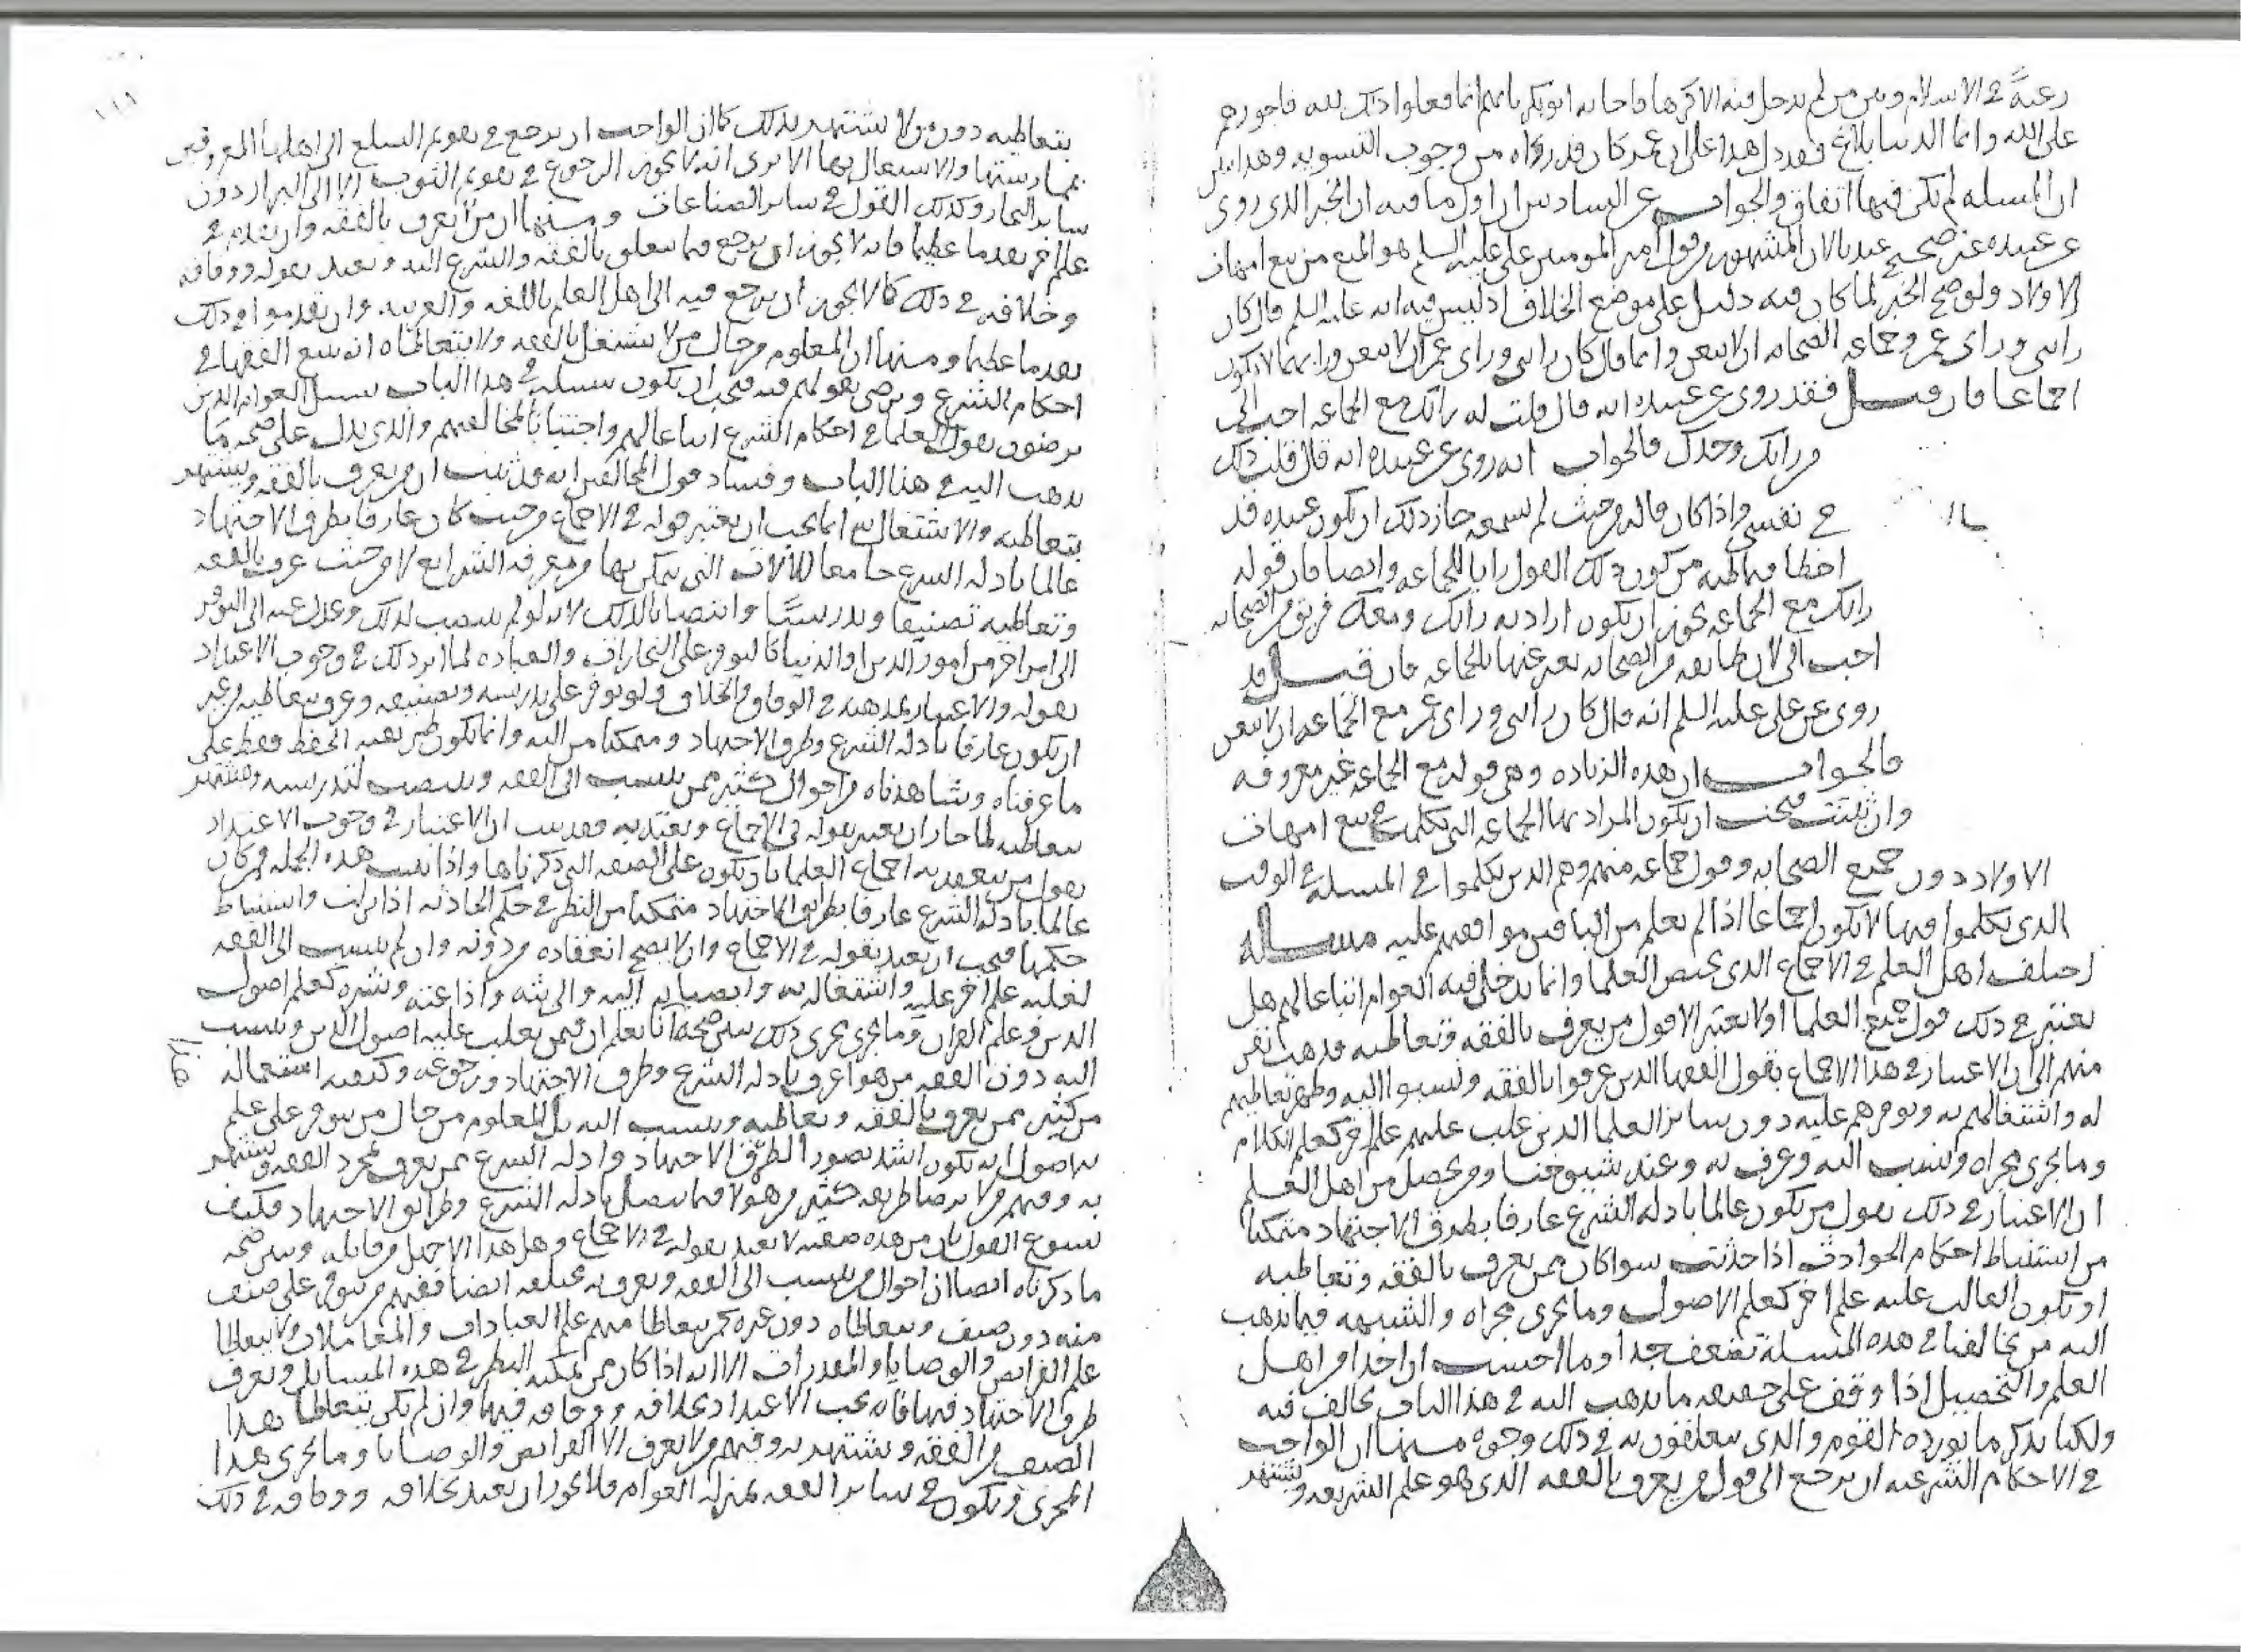 رغبة في الاسلام وبين من لم يدخل فيه الا كرها فاجابه ابو بكر بانهم انما فعلوا ذلك لله فاجورهم
على الله وانما الدنيا بلاغ فعدل هذا على ان عمر كان قد رواه من وجوب التسويه وهذا يبين
ان المسله لم يكن فيها اتفاق والجواب عن السادس ان اول ما فيه ان الخبر الذي روى
عن عبيده غير صحيح عندنا لان المشهور من قول امير المومنين علي عليه السلم هو المنع من بيع امهات
الاولاد ولو صح الخبر لما كان فيه دليل على موضع الخلاف اذ ليس فيه انه عليه السلم قال كان
رايي وراى عمر وجماعه الصحابه ان لا يبعن وانما قال كان رايي وراى عمر ان لا يبعن ورايهما لا يكون
اجماعا فان قيل فقد روى عن عبيده انه قال قلت له رايك مع الجماعه احب الي
من رايك وحدك فالجواب انه روى عن عبيده انه قال قلت ذلك
في نفسي واذا كان قاله من حيث لم يسمعه جاز ذلك ان يكون عبيده قد
اخطا فيما ظنه من كون ذلك القول رايا للجماعه وايضا فان قوله
رايك مع الجماعه يجوز ان يكون اراد به رايك ومعك فريق من الصحابه
احب الي لان طايفه من الصحابه يعبر عنها بالجماعه فان قيل قد
روى عن علي عليه السلم انه قال كان رايي وراى عمر مع الجماعه ان لا يبعن
فالجواب ان هذه الزياده وهي قوله مع الجماعه غير معروفه
وان ثبتت فيجب ان يكون المراد بها الجماعه التي تكلمت في بيع امهات
الاولاد دون جميع الصحابه وقول جماعه منهم وهم الذين تكلموا في المسله في الوقت
الذي تكلموا فيها لا يكون اجماعا اذا لم يعلم من الباقين موافقتهم عليه مسله
اختلف اهل العلم في الاجماع الذي يخص العلما وانما يدخل فيه العوام اتباعا لهم هل
يعتبر في ذلك قول جميع العلما اولا يعتبر الا قول من يعرف بالفقه وتعاطيه فذهب نفر
منهم الى ان الاعتبار في هذا الاجماع بقول الفقها الذين عرفوا بالفقه ونسبوا اليه وظهر تعاطيهم
له واشتغالهم به وتوفرهم عليه دون ساير العلما الذين غلب عليهم علم اخر كعلم الكلام
وما يجري مجراه ونسب اليه وعرف به وعند شيوخنا ومن يحصل من اهل العلم
ان الاعتبار في ذلك بقول من يكون عالما بادله الشرع عارفا بطرق الاجتهاد متمكنا
من استنباط احكام الحوادث اذا حدثت سوا كان ممن يعرف بالفقه وتعاطيه
او يكون الغالب عليه علم اخر كعلم الاصول وما يجري مجراه والشبهه فيما يذهب
اليه من يخالفنا في هذه المسلة تضعف جدا وما احسب ان احدا من اهل
العلم والتحصيل اذا وقف على حقيقه ما يذهب اليه في هذا الباب يخالف فيه
ولكنا نذكر ما يورده القوم والذي يتعلقون به في ذلك وجوه منها ان الواجب
في الاحكام الشرعيه ان يرجع الى قول من يعرف بالفقه الذي هو علم الشريعه ويشتهر
بتعاطيه دون من لا يشتهر بذلك كما ان الواجب ان يرجع في تقويم السلع الى اهلها المعروفين
بممارستها والاشتغال بها الا ترى انه لا يجوز الرجوع في تقويم الثوب الا الى البزاز دون
ساير التجار وكذلك القول في ساير الصناعات ومنها ان من لا يعرف بالفقه وان تقدم في
علم اخر تقدما عظيما فانه لا يجوز ان يرجع فيما يتعلق بالفقه والشرع اليه ويعتد بقوله ووفاقه
وخلافه في ذلك كما لا يجوز ان يرجع فيه الى اهل العلم باللغه والعربيه وان تقدموا في ذلك
تقدما عظيما ومنها ان المعلوم من حال من لا يشتغل بالفقه ولا يتعاطاه انه يتبع الفقها في
احكام الشرع ويرضى بقولهم فيه فيجب ان يكون سبيله في هذا الباب سبيل العوام الذين
يرضون بقول العلما في احكام الشرع اتباعا لهم واجتنابا لمخالفتهم والذي يدل على صحه ما
يذهب اليه في هذا الباب وفساد قول المخالفين انه قد ثبت ان من يعرف بالفقه ويشتهر
بتعاطيه والاشتغال به انما يجب ان يعتبر قوله في الاجماع من حيث كان عارفا بطرق الاجتهاد
عالما بادله الشرع جامعا للالات التي يتمكن بها من معرفه الشرايع لا من حيث عرف بالفقه
وتعاطيه تصنيفا وتدريسا وانتصابا لذلك لانه لو لم ينتصب لذلك وعدل عنه الى التوفر
الى امر اخر من امور الدين او الدنيا كالتوفر على التجارات والعباده لما اثر ذلك في وجوب الاعتداد
بقوله والاعتبار بمذهبه في الوفاق والخلاف ولو توفر على تدريسه وتصنيفه وعرف بتعاطيه من غير
ان يكون عارفا بادله الشرع وطرق الاجتهاد ومتمكنا من اليه وانما يكون طريقته الحفظ فقط على
ما عرفناه وشاهدناه من احوال كثير ممن ينسب الى الفقه وينتصب لتدريسه ويشتهر
بتعاطيه لما جاز ان يعتبر بقوله في الاجماع ويعتد به فقد ثبت ان الاعتبار في وجوب الاعتداد
بقول من ينعقد به اجماع العلما بان يكون على الصفه التي ذكرناها واذا ثبت هذه الجمله فمن كان
عالما بادله الشرع عارفا بطرايق الاجتهاد متمكنا من النظر في حكم الحادثه اذا نزلت واستنباط
حكمها فيجب ان يعتد بقوله في الاجماع وان لا يصح انعقاده من دونه وان لم ينسب الى الفقه
لغلبه علم اخر عليه واشتغاله به وانتصابه اليه والى بثه واذاعته ونشره كعلم اصول
الدين وعلم القران وما يجري مجرى ذلك يبين صحته انا نعلم ان فيمن يغلب عليه اصول الدين وينسب
اليه دون الفقه من هو اعرف بادله الشرع وطرق الاجتهاد وكيفيه استعماله
من كثير ممن يعرف بالفقه وتعاطيه وينسب اليه بل المعلوم من حال من يتوفر على علم
الاصول انه يكون اشد تصورا لطرق الاجتهاد وادله الشرع ممن يعرف بمجرد الفقه ويشتهر
به وفيهم من لا يرضا طريقه كثير من هولا فيما يتصل بادله الشرع وطرايق الاجتهاد فكيف
يسوغ القول بان من هذه صفته لا يعتد بقوله في الاجماع وهل هذا الا جهل من قايله ويبين صحه
ما ذكرناه ايضا ان احوال من ينسب الى الفقه ويعرف به مختلفه ايضا ففيهم من يتوفر على صنف
منه دون صنف ويتعاطاه دون غيره كمن يتعاطا منهم علم العبادات والمعاملات ولا يتعاطا
علم الفرايض والوصايا والمقدرات الا انه اذا كان ممن يمكنه النظر في هذه المسايل ويعرف
طرق الاجتهاد فيها فانه يجب الاعتداد بخلافه ووفاقه فيها وان لم يكن يتعاطا هذا
الصنف من الفقه ويشتهر به وفيهم من لا يعرف الا الفرايض والوصايا وما يجري هذا
المجرى ويكون في ساير الفقه بمنزله العوام فلا يجوز ان يعتد بخلافه ووفاقه في ذلك